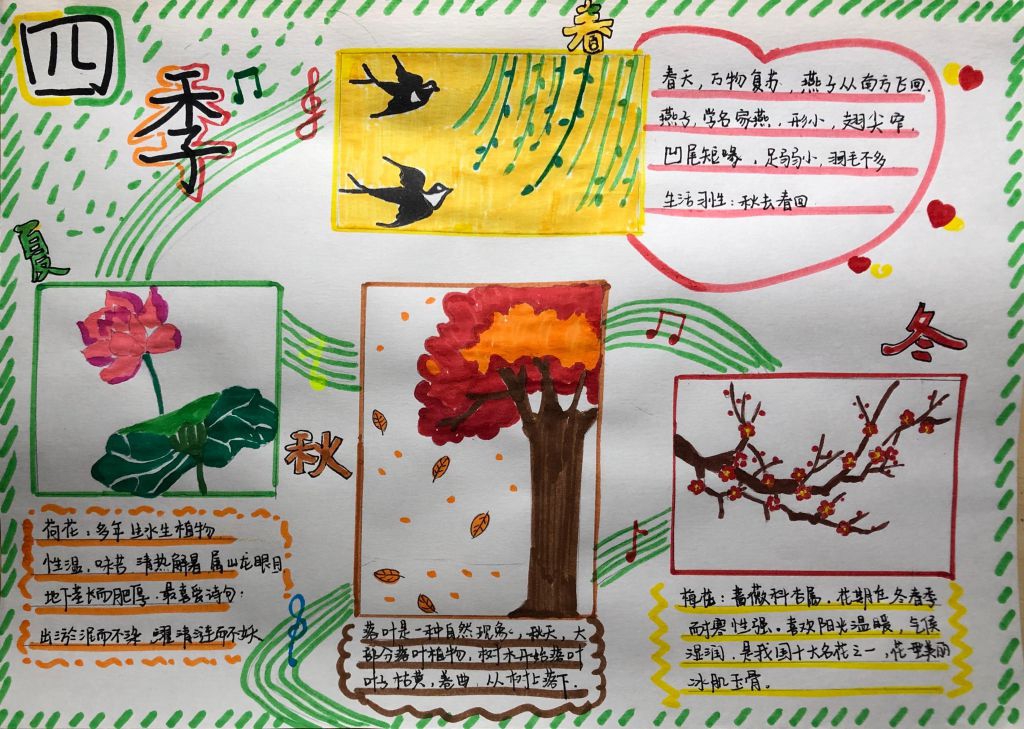 四季
春
春天，万物复苏，燕子从南方飞回.
燕子，学名家燕，形小，翅尖窄，
凹尾短喙，足弱小，羽毛不多
生活习性：秋去春回
夏
荷花：多年生水生植物
性温，味苦 清热解暑 属山龙眼目
地下茎长而肥厚. 最喜爱诗句：
出淤泥而不染 濯清涟而不妖
秋
落叶是一种自然现象，秋天，大
部分落叶植物，树木开始落叶
叶子枯黄，卷曲，从树上落下.
冬
梅花：蔷薇科杏属，花期在冬春季
耐寒性强。喜欢阳光温暖，气候
湿润，是我国十大名花之一，花型美丽
冰肌玉骨。